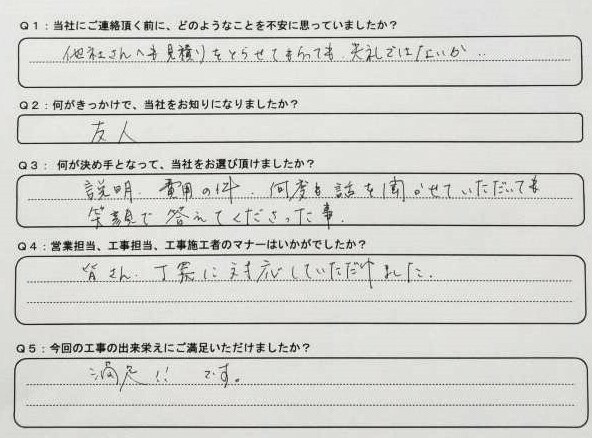 Q1：当社にご連絡頂く前に、どのようなことを不安に思っていましたか？
他社さんへも見積りをとらせてもらっても 失礼ではないか‥
Q2：何がきっかけで、当社をお知りになりましたか？
友人
Q3： 何が決め手となって、当社をお選び頂けましたか？
説明、費用の件、何度も話を聞かせていただいても
笑顔で答えてくださった事。
Q4：営業担当、工事担当、工事施工者のマナーはいかがでしたか？
皆さん、丁寧に対応していただけました。
Q5：今回の工事の出来栄えにご満足いただけましたか？
満足!! です。